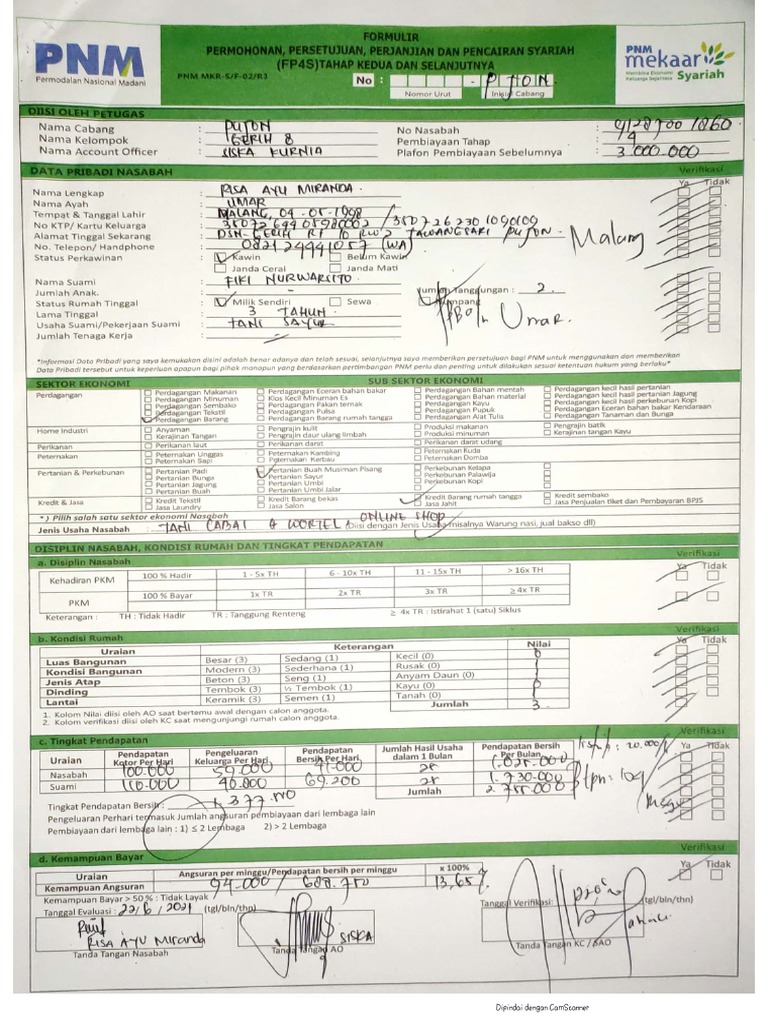 PNM
Permodalan Nasional Madani
FORMULIR
PERMOHONAN, PERSETUJUAN, PERJANJIAN DAN PENCAIRAN SYARIAH
(FP4S)TAHAP KEDUA DAN SELANJUTNYA
PNM MKR-S/F-02/R3
No : - PUJON
Nomor Urut Inisial Cabang
PNM
mekaar
Membina Ekonomi
Keluarga Sejahtera
Syariah
DIISI OLEH PETUGAS
Nama Cabang : PUJON
Nama Kelompok : GERIH 8
Nama Account Officer : SISKA KURNIA
No Nasabah :
Pembiayaan Tahap : 4
Plafon Pembiayaan Sebelumnya : 3.000.000
DATA PRIBADI NASABAH
Verifikasi
Ya Tidak
Nama Lengkap : RISA AYU MIRANDA
Nama Ayah : UMAR
Tempat & Tanggal Lahir : MALANG, 04-05-1998
No KTP/ Kartu Keluarga :
Alamat Tinggal Sekarang : DSN-GERIH RT 10 RW 2 TAWANGSARI PUJON- Malang
No. Telepon/ Handphone : 082124441057 (WA)
Status Perkawinan : Kawin Belum Kawin
Janda Cerai Janda Mati
Nama Suami : FIKI NURWARSITO
Jumlah Anak. : Jumlah Tanggungan : 2.
Status Rumah Tinggal : Milik Sendiri Sewa Menumpang
Lama Tinggal : 3 TAHUN
Usaha Suami/Pekerjaan Suami : TANI SAYUR
Umar.
Jumlah Tenaga Kerja :
*Informasi Data Pribadi yang saya kemukakan disini adalah benar adanya dan telah sesuai, selanjutnya saya memberikan persetujuan bagi PNM untuk menggunakan dan memberikan
Data Pribadi tersebut untuk keperluan apapun bagi pihak manapun yang berdasarkan pertimbangan PNM perlu dan penting untuk dilakukan sesuai ketentuan hukum yang berlaku*
SEKTOR EKONOMI SUB SEKTOR EKONOMI
Perdagangan Perdagangan Makanan Perdagangan Eceran bahan bakar Perdagangan Bahan mentah Perdagangan kecil hasil pertanian
Perdagangan Minuman Kios Kecil Minuman Es Perdagangan Bahan material Perdagangan kecil hasil pertanian Jagung
Perdagangan Sembako Perdagangan Pakan ternak Perdagangan Kayu Perdagangan kecil hasil perkebunan Kopi
Perdagangan Tekstil Perdagangan Pulsa Perdagangan Pupuk Perdagangan Eceran bahan bakar Kendaraan
Perdagangan Barang Perdagangan Barang rumah tangga Perdagangan Alat Tulis Perdagangan Tanaman dan Bunga
Home Industri Anyaman Pengrajin kulit Produksi makanan Pengrajin batik
Kerajinan Tangan Pengrajin daur ulang limbah Produksi minuman Kerajinan tangan Kayu
Perikanan Perikanan laut Perikanan darat Perikanan darat udang
Peternakan Peternakan Unggas Peternakan Kambing Peternakan Kuda
Peternakan Sapi Peternakan Kerbau Peternakan Domba
Pertanian & Perkebunan Pertanian Padi Pertanian Buah Musiman Pisang Perkebunan Kelapa
Pertanian Bunga Pertanian Sayur Perkebunan Palawija
Pertanian Jagung Pertanian Umbi Perkebunan Kopi
Pertanian Buah Pertanian Umbi Jalar
Kredit & Jasa Kredit Tekstil Kredit Barang bekas Kredit Barang rumah tangga Kredit sembako
Jasa Laundry Jasa Salon Jasa Jahit Jasa Penjualan tiket dan Pembayaran BPJS
*) Pilih salah satu sektor ekonomi Nasabah
Jenis Usaha Nasabah : TANI CABAI & WORTEL ONLINE SHOP Diisi dengan Jenis Usaha misalnya Warung nasi, jual bakso dll)
DISIPLIN NASABAH, KONDISI RUMAH DAN TINGKAT PENDAPATAN
a. Disiplin Nasabah
Verifikasi
Ya Tidak
Kehadiran PKM 100 % Hadir 1 - 5x TH 6 - 10x TH 11 - 15x TH > 16x TH
PKM 100 % Bayar 1x TR 2x TR 3x TR ≥ 4x TR
Keterangan : TH : Tidak Hadir TR : Tanggung Renteng ≥ 4x TR : Istirahat 1 (satu) Siklus
b. Kondisi Rumah
Verifikasi
Ya Tidak
Uraian Keterangan Nilai
Luas Bangunan Besar (3) Sedang (1) Kecil (0) 0
Kondisi Bangunan Modern (3) Sederhana (1) Rusak (0) 1
Jenis Atap Beton (3) Seng (1) Anyam Daun (0) 1
Dinding Tembok (3) ½ Tembok (1) Kayu (0) 0
Lantai Keramik (3) Semen (1) Tanah (0) 1
Jumlah 3
1. Kolom Nilai diisi oleh AO saat bertemu awal dengan calon anggota.
2. Kolom verifikasi diisi oleh KC saat mengunjungi rumah calon anggota.
c. Tingkat Pendapatan
Verifikasi
Ya Tidak
Uraian Pendapatan Kotor Per Hari Pengeluaran Keluarga Per Hari Pendapatan Bersih Per Hari Jumlah Hasil Usaha dalam 1 Bulan Pendapatan Bersih Per Bulan
Nasabah 100.000 59.000 41.000 25 1.025.000
Suami 110.000 40.800 69.200 25 1.730.000
Jumlah 2.755.000
Tingkat Pendapatan Bersih :
Pengeluaran Perhari termasuk Jumlah angsuran pembiayaan dari lembaga lain
Pembiayaan dari lembaga lain : 1) ≤ 2 Lembaga 2) > 2 Lembaga
d. Kemampuan Bayar
Verifikasi
Ya Tidak
Uraian Angsuran per minggu/Pendapatan bersih per minggu x 100%
Kemampuan Angsuran 94.000 / 688.750 13,65%
Kemampuan Bayar > 50 % : Tidak Layak
Tanggal Evaluasi : 22/6/2021 (tgl/bln/thn)
Tanggal Verifikasi: (tgl/bln/thn)
RISA AYU MIRANDA
SISKA
Tanda Tangan Nasabah
Tanda Tangan AO
Tanda Tangan KC / SAO
Dipindai dengan CamScanner